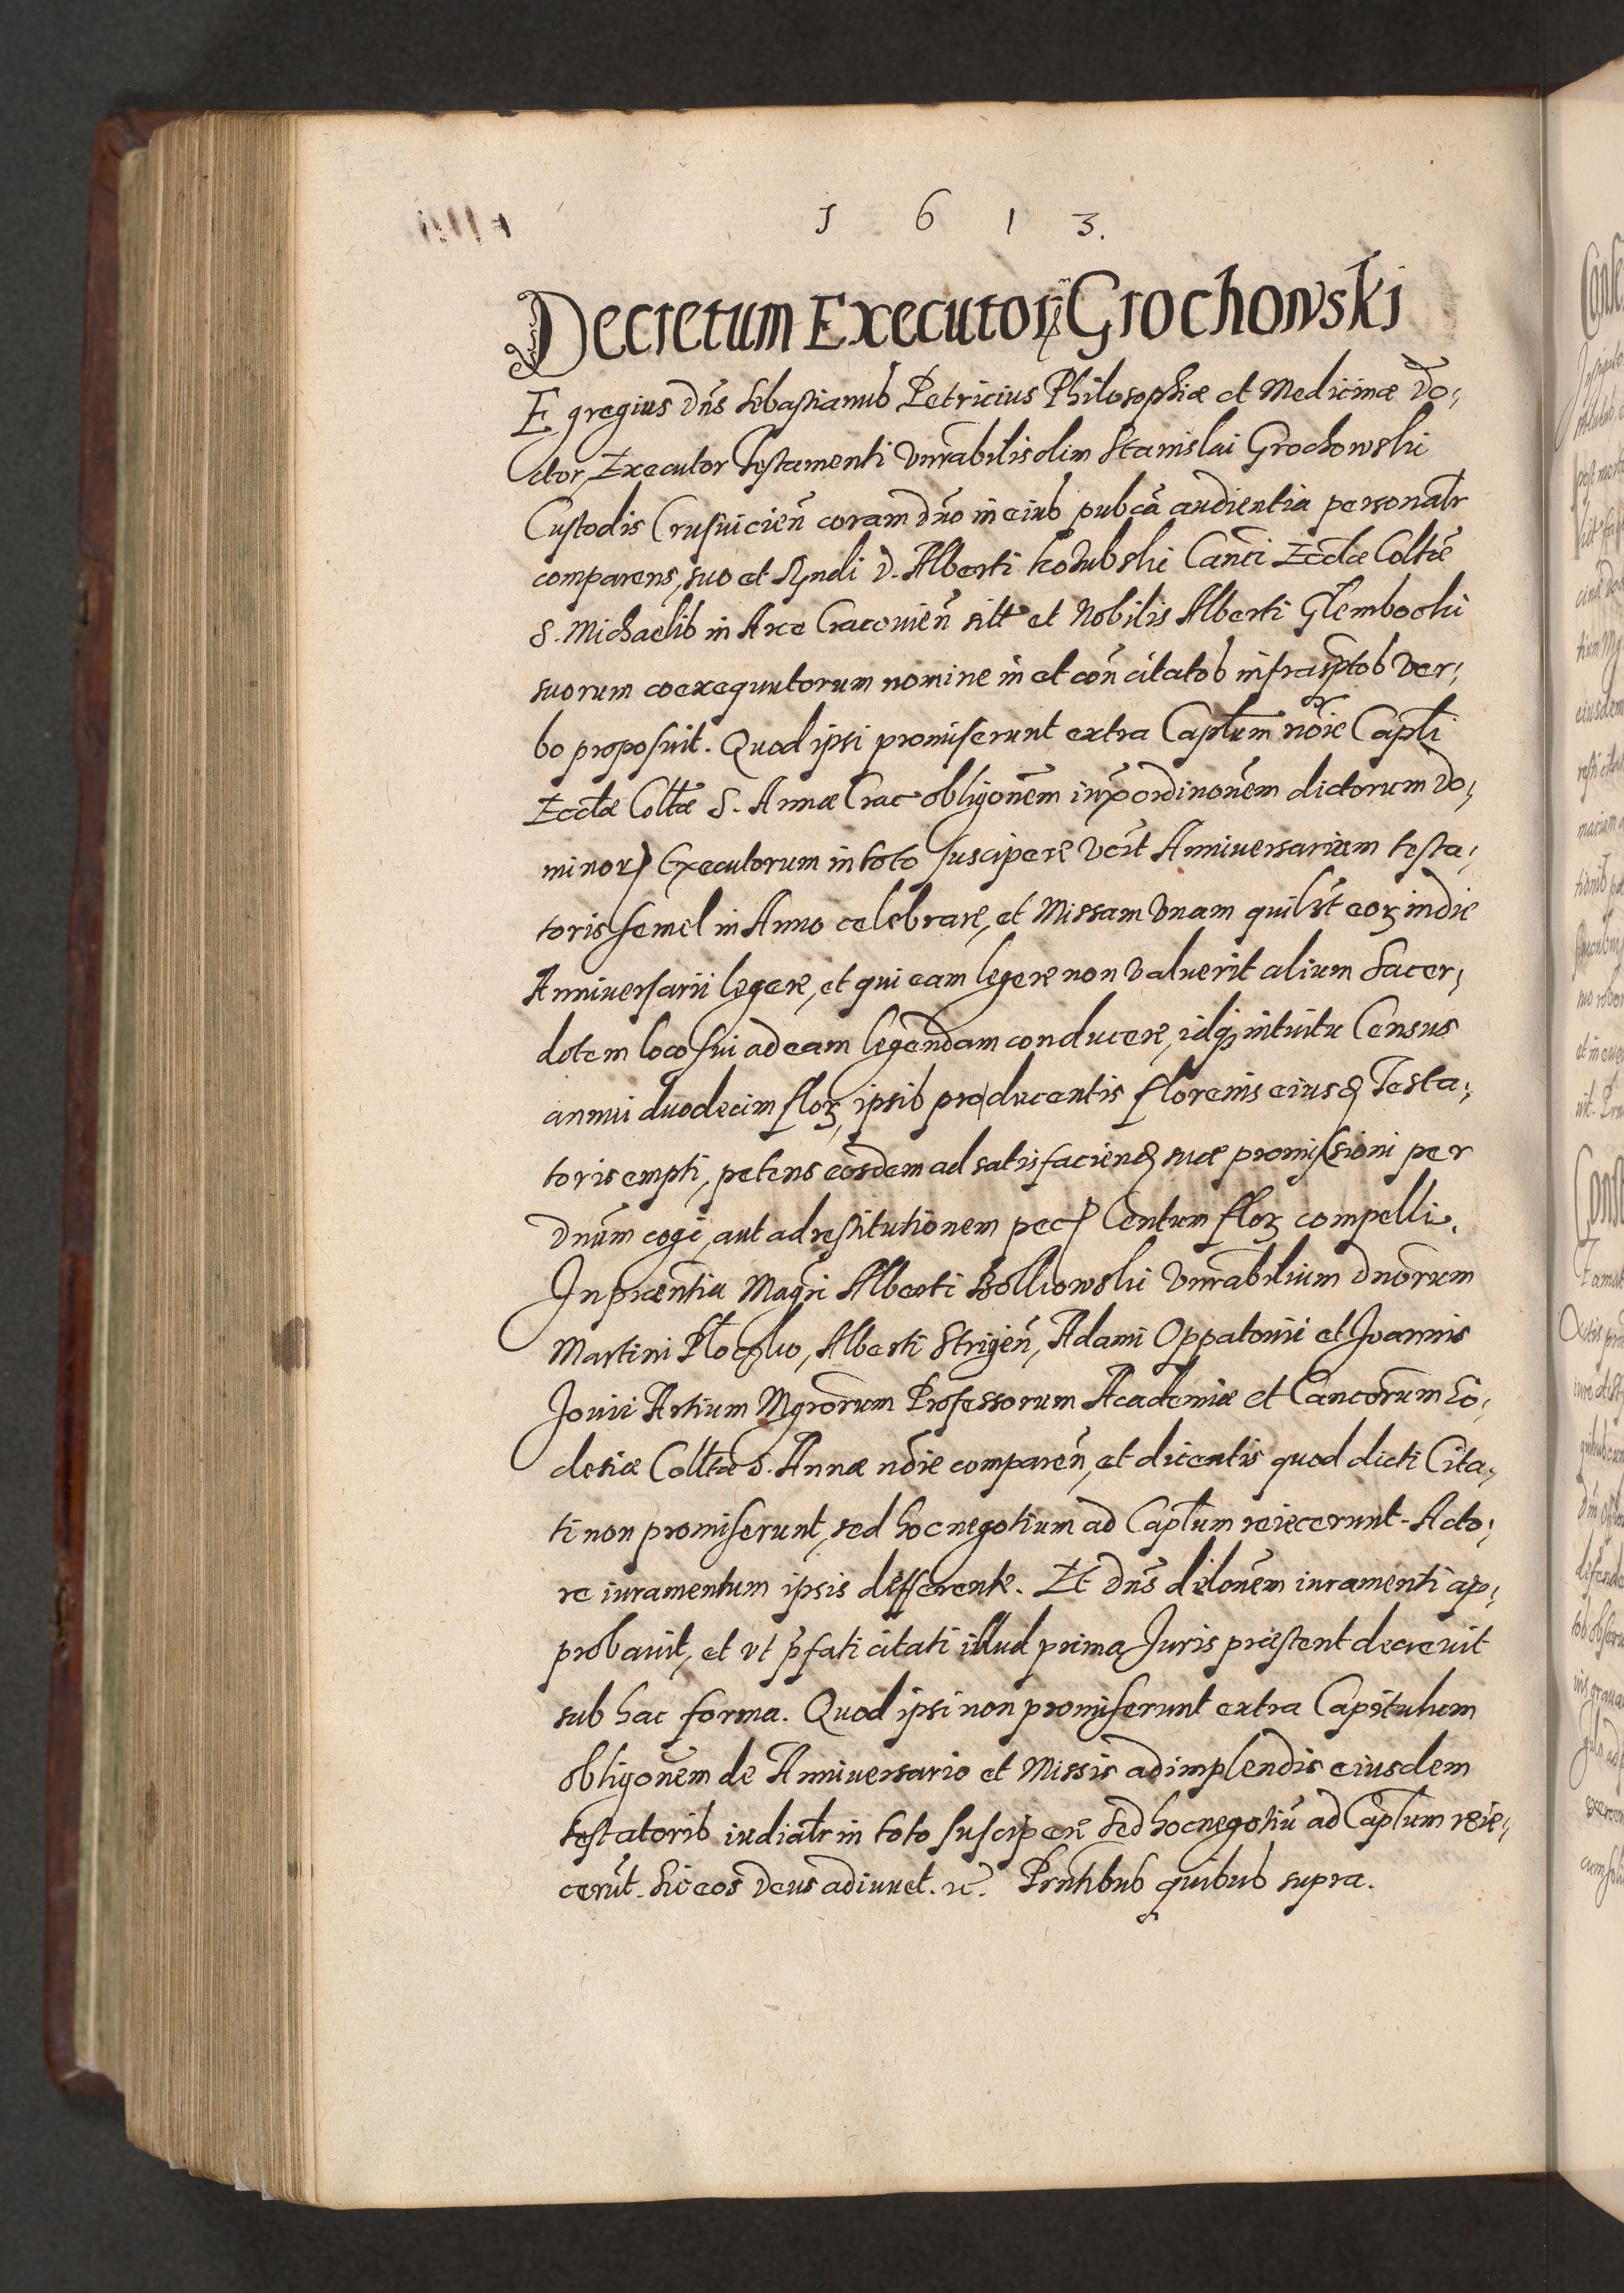 1 6 1 3.
Decretum Executorꝝ Grochowski
Egregius Dn̄s Sebastianus Petricius Philosophiæ et Medicinæ Do-
ctor, Executor Testamenti Vnrabilis olim Stanislai Grochowski
Custodis Crusuicien̄ coram Dn̄o in eius pubca audientia personalr
comparens, suo et Rndi D. Alberti Canci Eccliæ Collte
S. Michaelis in Arce Cracouien̄ sitt et Nobilis Alberti Glembocki
suorum coexequutorum nomine in et con̄ citatos infrasptos ver-
bo proposuit. Quod ipsi promiserunt extra Capłum nōie Capłi
Eccliæ Colltæ S. Annæ Crac obligōnem iuxᵃ ordinōnem dictorum Do-
minorꝝ Executorum in toto suscipere vcīt Anniuersarium testa-
toris semel in Anno celebrare, et Missam vnam quilīt eorꝝ in die
Anniuersarii legere, et qui eam legere non valuerit alium Sacer-
dotem loco sui ad eam legendam conducere, idqꝫ intuitu Census
annui duodecim florꝝ, ipsis pro ducentis florenis eiusdꝫ Testa-
toris empti, petens eosdem ad satisfaciendꝫ suæ promissioni per
Dnūm cogi, aut ad restitutionem pecꝭ Centum florꝝ compelli.
In præntia Magri Alberti Vnrabilium Dnōrum
Martini Alberti Strigen̄, Adami Oppatouii et Joannis
Jouii Artium Mgrōrum Professorum Academiæ et Cancōrum Ec-
clesiæ Colltæ S. Annæ nōie comparen̄, et dicentis quod dicti Cita-
ti non promiserunt, sed hoc negotium ad Capłum reiecerunt. Acto-
re iuramentum ipsis defferente. Et Dn̄s dēlonem iuramenti ap-
probauit, et vt p̄fati citati illud prima Juris præstent decreuit
sub hac forma. Quod ipsi non promiserunt extra Capitulum
obligōnem de Anniuersario et Missis adimplendis eiusdem
testatoris iudialr in toto suscipere sed hoc negotiū ad Capłum reie-
cerūt. Sic eos Deus adiuuet. ⁊c. Prn̄tibus quibus supra.